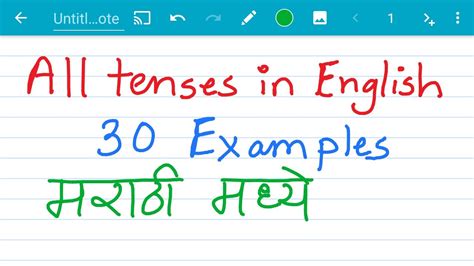 Untitl...ote 1
All tenses in English
30 Examples
मराठी मध्ये